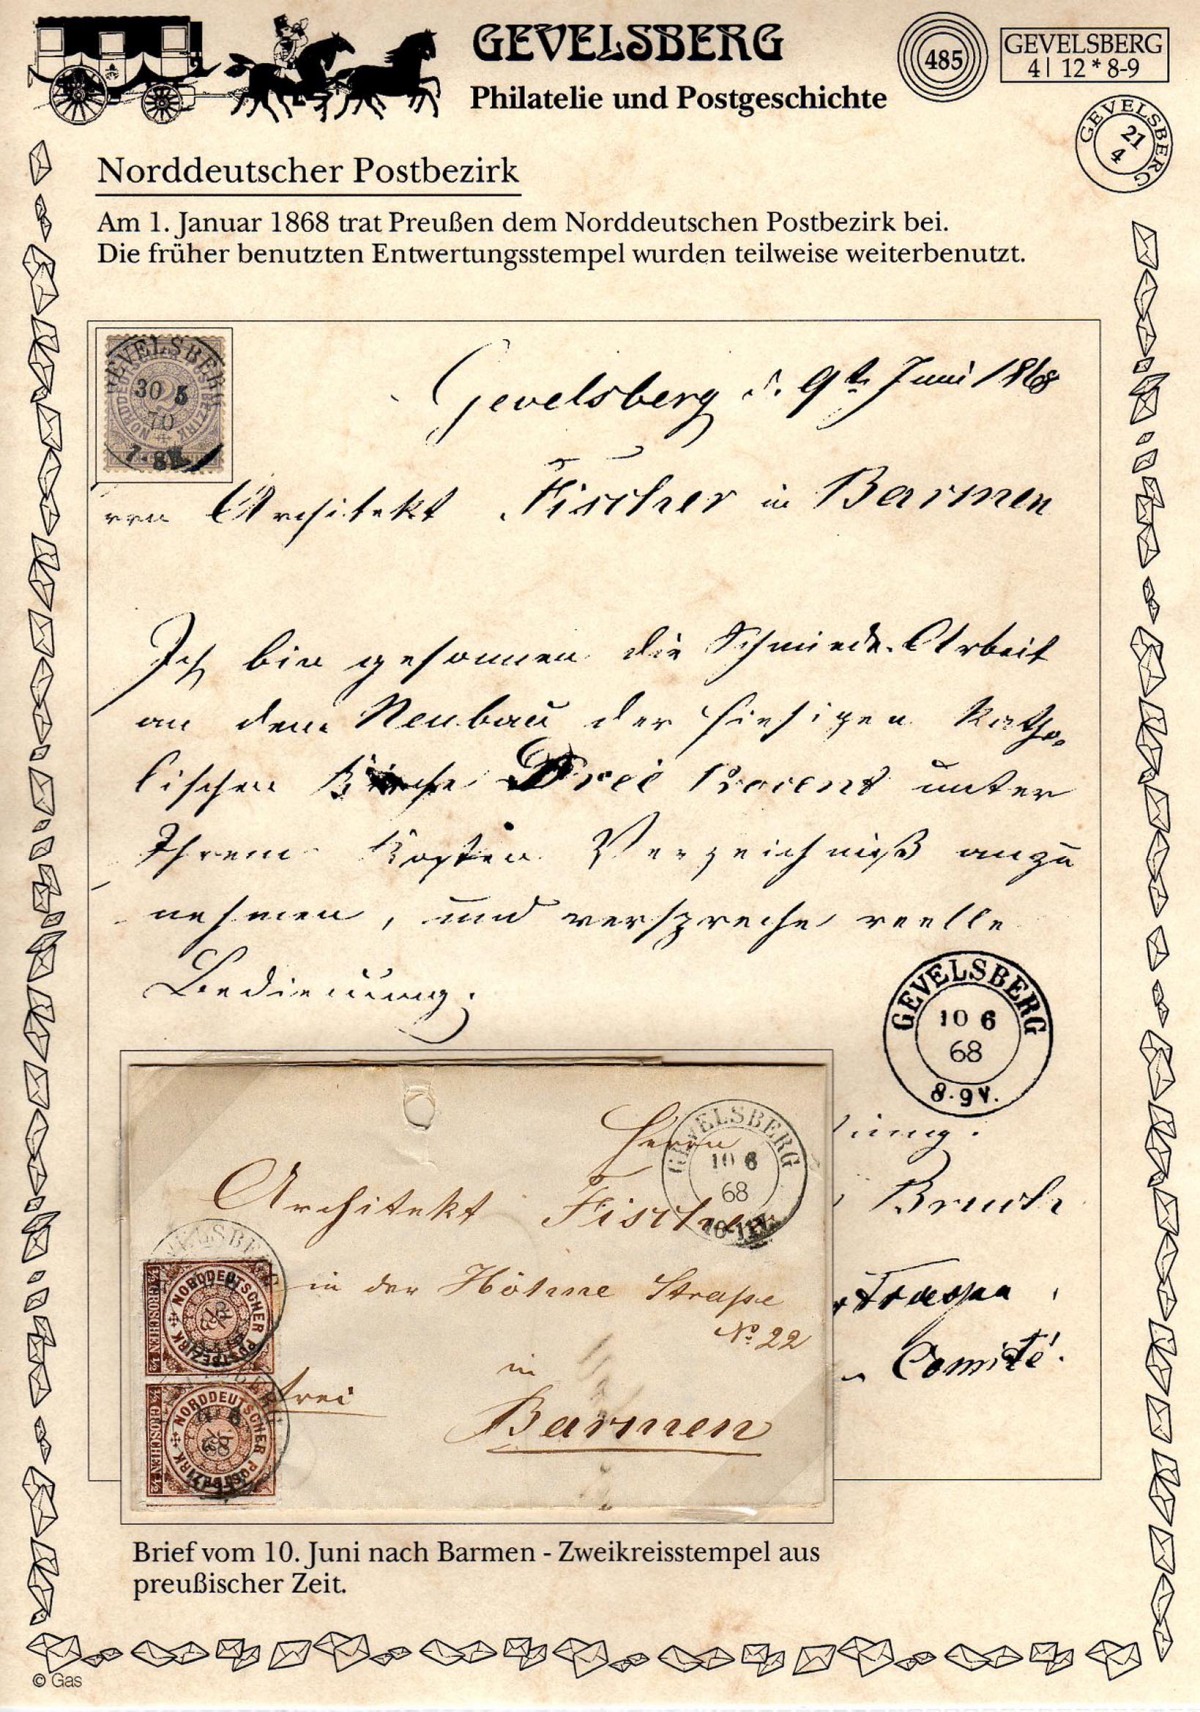 GEVELSBERG
Philatelie und Postgeschichte
485
GEVELSBERG
4| 12 * 8-9
GEVELSBERG
21
4
Norddeutscher Postbezirk
Am 1. Januar 1868 trat Preußen dem Norddeutschen Postbezirk bei.
Die früher benutzten Entwertungsstempel wurden teilweise weiterbenutzt.
GEVELSBERG
30 5
70
Gevelsberg d. 9ten Juni 1868
Architekt Fischer in Barmen
Ich bin gesonnen die Schmiede-Arbeit
an dem Neubau der hiesigen katho-
lischen Kirche Drei Procent unter
Ihrem Kosten Verzeichniß anzu
nehmen, und verspreche reelle
Bedienung.
GEVELSBERG
10 6
68
8-9V.
Bruch
Comité.
Herrn
Architekt Fischer
in der Höhne Straße
No 22
in
Barmen
frei
GEVELSBERG
10 6
68
GEVELSBERG
NORDDEUTSCHER POSTBEZIRK
1/2 GROSCHEN 1/2
NORDDEUTSCHER POSTBEZIRK
1/2 GROSCHEN 1/2
68
Brief vom 10. Juni nach Barmen - Zweikreisstempel aus
preußischer Zeit.
© Gas